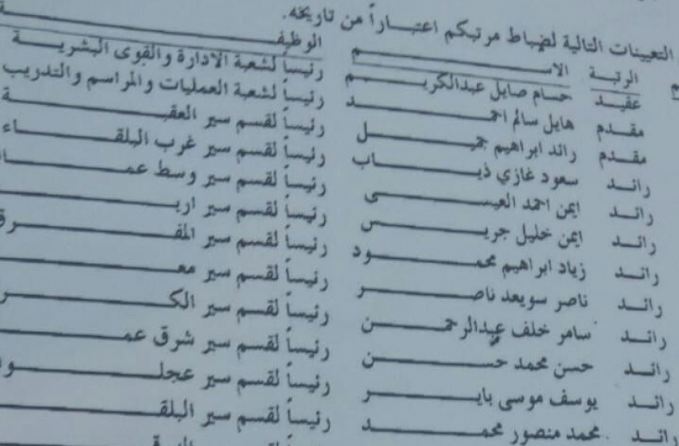 التعيينات التالية لضباط مرتبكم اعتباراً من تاريخه.
الرتبة الاسم الوظيفة
عقيد حسام صايل عبدالكريم رئيساً لشعبة الادارة والقوى البشرية
مقدم هايل سالم احمد رئيساً لشعبة العمليات والمراسم والتدريب
مقدم رائد ابراهيم جميل رئيساً لقسم سير العقبة
رائد سعود غازي ذياب رئيساً لقسم سير غرب البلقاء
رائد ايمن احمد العيسى رئيساً لقسم سير وسط عما
رائد ايمن خليل جريس رئيساً لقسم سير ارب
رائد زياد ابراهيم محمود رئيساً لقسم سير المفرق
رائد ناصر سويعد ناصر رئيساً لقسم سير معـ
رائد سامر خلف عبدالرحمن رئيساً لقسم سير الكر
رائد حسن محمد حسن رئيساً لقسم سير شرق عمـ
رائد يوسف موسى باير رئيساً لقسم سير عجلو
رائد محمد منصور محمد رئيساً لقسم سير البلقـ